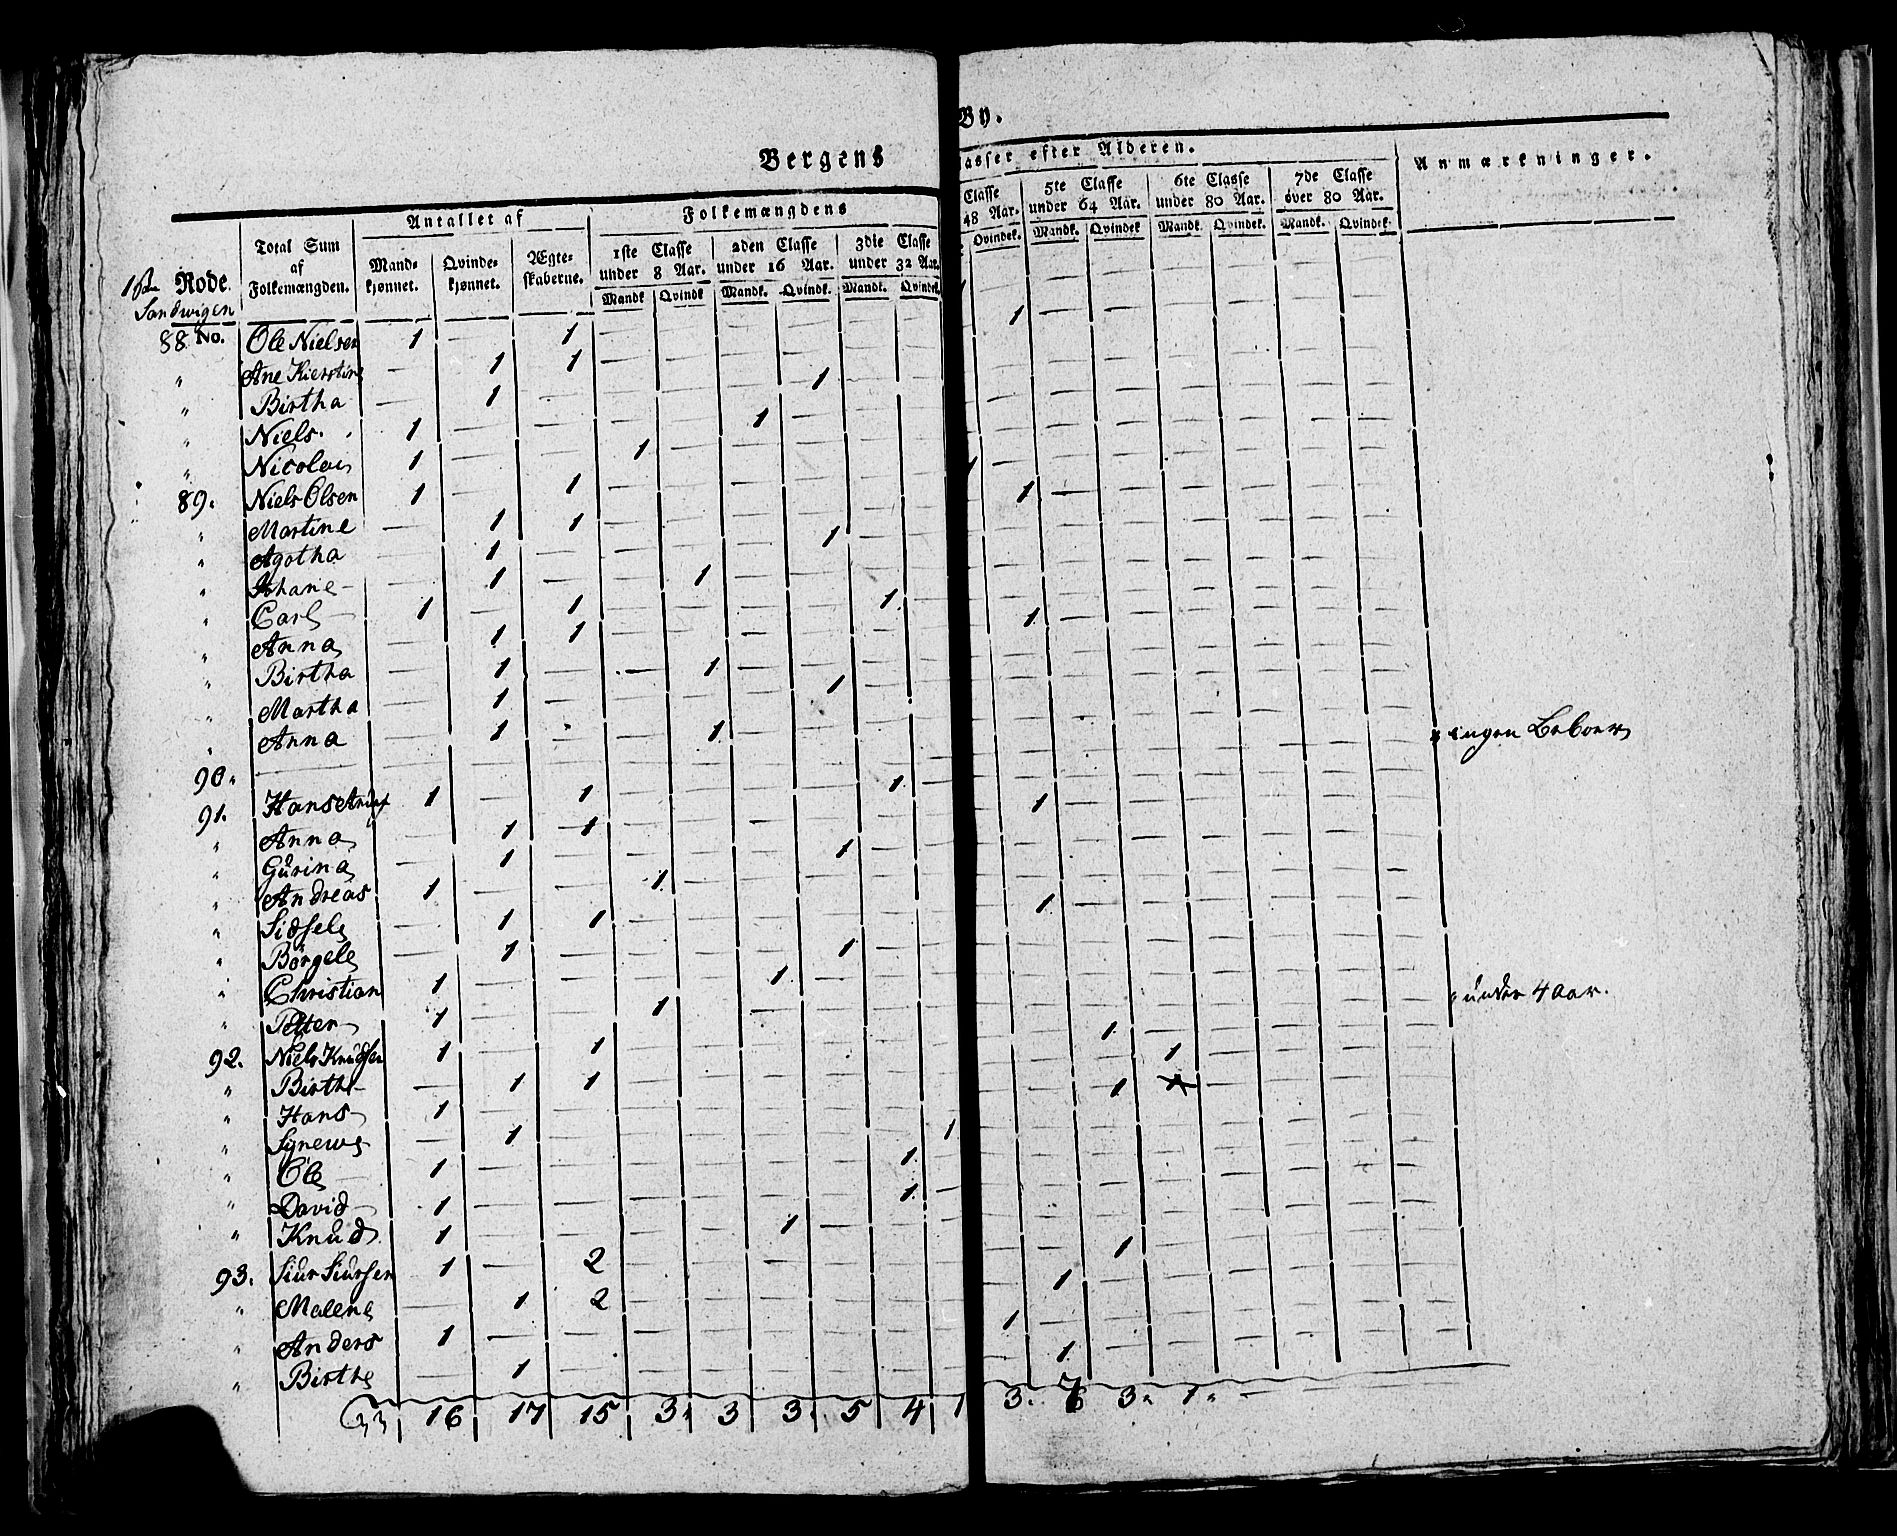 Bergens By.
Antallet af Folkemængdens lasser efter Alderen. Anmærkninger.
1ste Rode. Sandwigen
Total Sum af Folkemængden.
Mandkjønnet. Qvindekjønnet. Ægteskaberne.
1ste Classe under 8 Aar. 2den Classe under 16 Aar. 3die Classe under 32 Aar. Classe 48 Aar. 5te Classe under 64 Aar. 6te Classe under 80 Aar. 7de Classe over 80 Aar.
Mandk Qvindk Mandk. Qvindk. Mandk. Qvindek. Qvindek. Mandk. Qvindek Mandk. Qvindek. Mandk. Qvindek.
88 No. Ole Nielsen 1 — 1
" Ane Kierstine — 1 1 1
" Birtha — 1 — 1
" Niels 1 — — 1
" Nicolai 1 — — 1
89. Niels Olsen 1 — 1 1
" Martine — 1 1 1
" Agotha — 1 — 1
" Johane — 1 — 1
" Carl 1 — 1 1
" Anna — 1 1 1
" Birtha — 1 — 1
" Martha — 1 — 1
" Anna — 1 — 1
90. — " ingen Beboere
91. Hans 1 — 1 1
" Anna — 1 1 1
" Gurina — 1 — 1
" Andreas 1 — — 1
" Sidsele — 1 1 1
" Børgele — 1 — 1
" Christian 1 — — 1
" Petter 1 — — 1 " under 4 aar.
92. Niels Knudsen 1 — 1 1
" Birthe — 1 1 1
" Hans 1 — — 1
" Synewe — 1 — 1
" Ole 1 — — 1
" David 1 — — 1
" Knud 1 — — 1
93. Siur Siursen 1 — 2 1
" Malene — 1 2 1
" Anders 1 — — 1
" Birthe — 1 — 1
33 16 17 15 3 3 3 5 4 1 3. 7 3 1